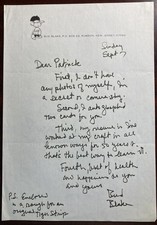 Sunday
Sept 7
Dear Patrick
First, I don't have
any photos of myself, in
a secret or camera shy.
Second, I autographed
two cards for you
Third, my reason is I've
worked at my craft in all
known ways for 50 years &
that's the best way to learn it.
Fourth, best of health
and happiness to you
and yours
P.S. Enclosed
is a rough for an
original Tiger Strip
Bud
Blake